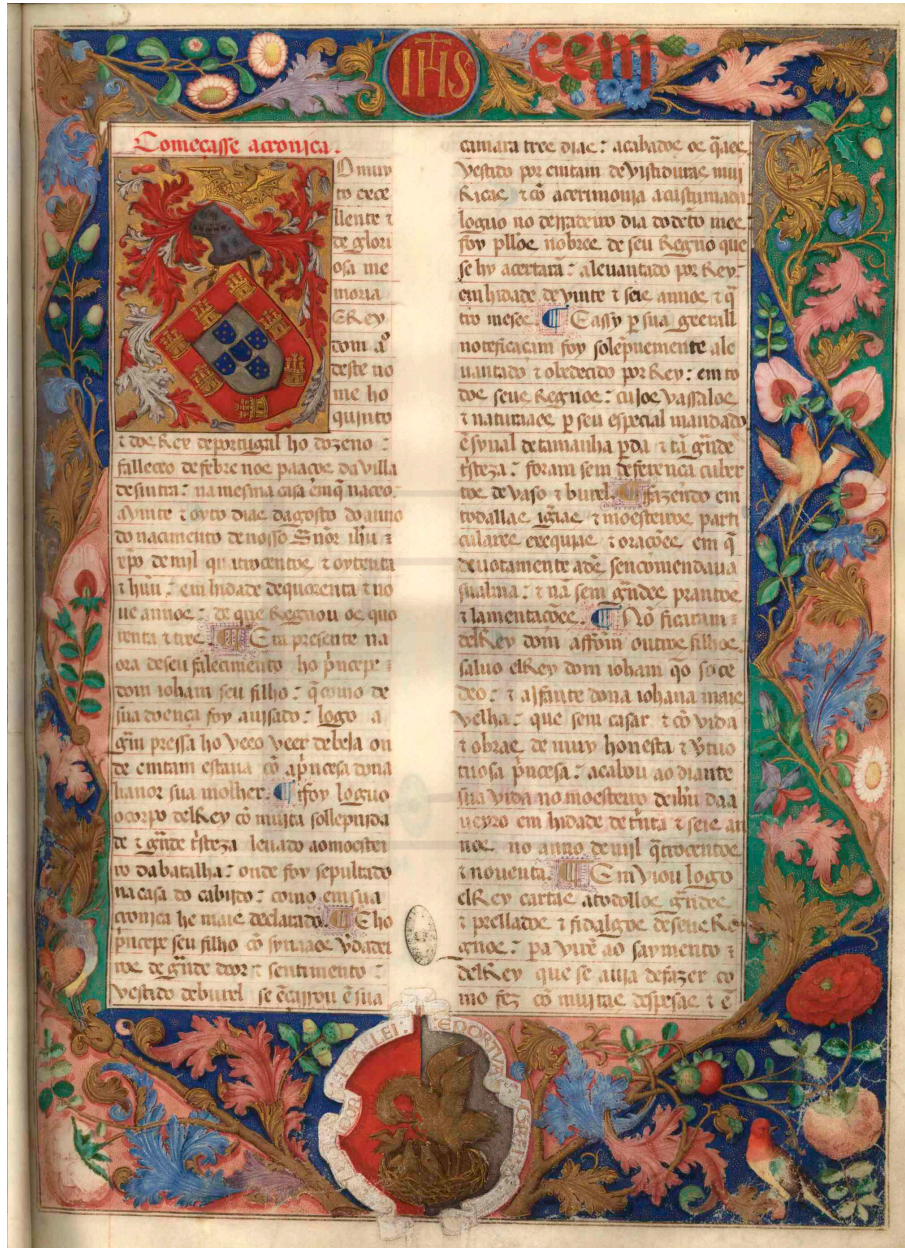 IHS
cem
Começasse acronica.
O muy
to exce
llente ⁊
de glori
osa me
moria
ElRey
dom aº
deste no
me ho
quinto
⁊ dos Rey deportugal ho dozeno :
falleceo de febre nos paaços da villa
desintra : na mesma casa ẽmq̃ naceo.
avinte ⁊ oyto dias dagosto do anno
do nacimento de nosso Snõr ihũ ⁊
xp̃o de mil quatrocentos ⁊ oytenta
⁊ hũu : em hidade dequorenta ⁊ no
ue annos : de que Regnou os quo
renta ⁊ tres Era presente na
ora deseu falecimento ho prĩcepe :
dom ioham seu filho : q̃como de
sua doença foy auisado : logo a
grãm pressa ho veeo veer debeia on
de emtam estaua cõ aprĩcesa dona
lianor sua molher. ¶ ffoy loguo
ocorpo delRey cõ mujta sollepnida
de ⁊ grãde tristeza leuado aomoestei
ro dabatalha : onde foy sepultado
nacasa do cabijdo : como emsua
cronica he mais declarado ¶ Eho
prĩcepe seu filho cõ synaaes vdadei
ros de grãde door ⁊ sentimento :
vestido deburel se ẽcarrou ẽ sua
camara tres dias : acabados os q̃aes
vestido por emtam de vistiduras mui
Ricas ⁊ cõ acerimonia acustumada
loguo no derradeiro dia dodcto mes
foy pllos nobres de seu Regno que
se hy acertarã : aleuantado por Rey :
em hidade de vinte ⁊ seis annos ⁊ q̃
tro meses ¶ Eassy p sua geerall
noteficacam foy solepnemente ale
uantado ⁊ obedecido por Rey : em to
dos seus Regnos : cujos vassalos
⁊ naturaaes p seu especial mandado
ẽ synal de tamanha pda ⁊ tã grãde
tristeza : foram sem deferenca cuber
tos de vaso ⁊ burel. ¶ fazendo em
todallas igr̃as ⁊ moesteiros parti
culares exequias ⁊ oracões em q̃
deuotamente adš sencomendaua
sualma : ⁊ nã sem grãdes prantos
⁊ lamentacões. ¶ Nõ ficaram :
delRey dom affom outros filhos
saluo elRey dom ioham q̃o soce
deo : ⁊ aIffante dona iohana mais
velha : que sem casar ⁊ cõ vida
⁊ obras de muy honesta ⁊ vtuo
tuosa prĩcesa : acabou ao diante
sua vida no moesteiro de ihũ daa
ueyro em hidade de trĩnta ⁊ seis an
nos no anno de mjl q̃trocentos
⁊ noventa. ¶ Emviou logo
elRey cartas atodollos grãdes
⁊ prellados ⁊ fidalgos deseus Re
gnos : pa virẽ ao saymento ⁊
delRey que se auia defazer co
mo fez cõ mujtas despesas ⁊ e